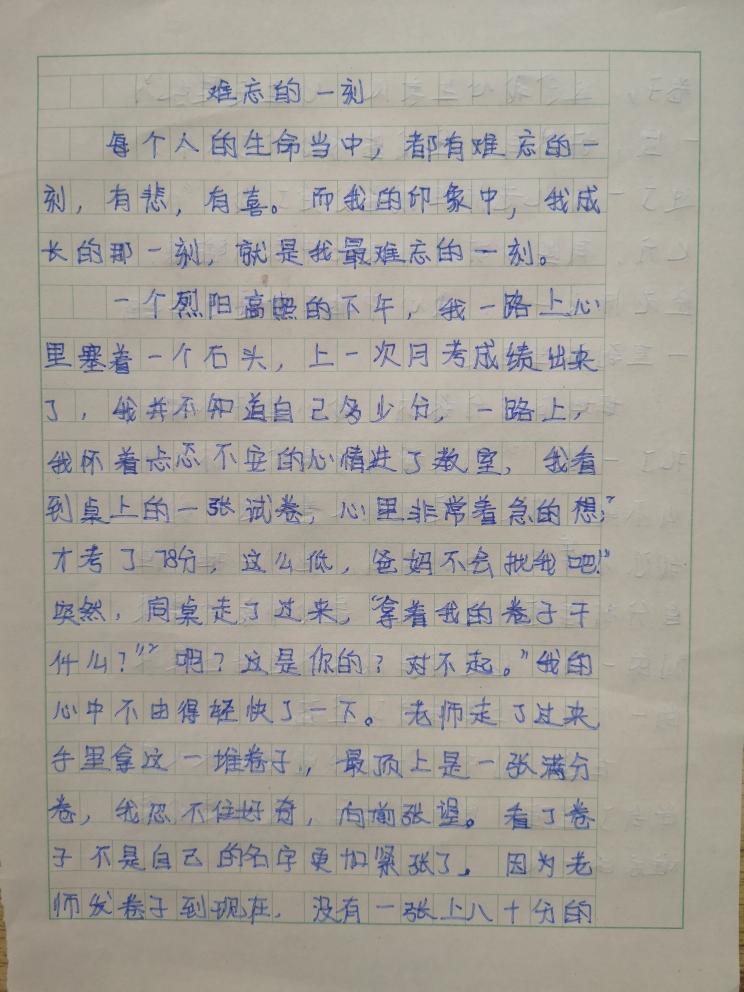 难忘的一刻
每个人的生命当中，都有难忘的一
刻，有悲，有喜。而我的印象中，我成
长的那一刻，就是我最难忘的一刻。
一个烈阳高照的下午，我一路上心
里塞着一个石头，上一次月考成绩出来
了，我并不知道自己多少分，一路上，
我怀着忐忑不安的心情进了教室，我看
到桌上的一张试卷，心里非常着急的想：“
才考了78分，这么低，爸妈不会批我吧！”
突然，同桌走了过来，“拿着我的卷子干
什么？”“啊？这是你的？对不起。”我的
心中不由得轻快了一下。老师走了过来
手里拿这一堆卷子，最顶上是一张满分
卷，我忍不住好奇，向前张望。看了卷
子不是自己的名字更加紧张了。因为老
师发卷子到现在，没有一张上八十分的